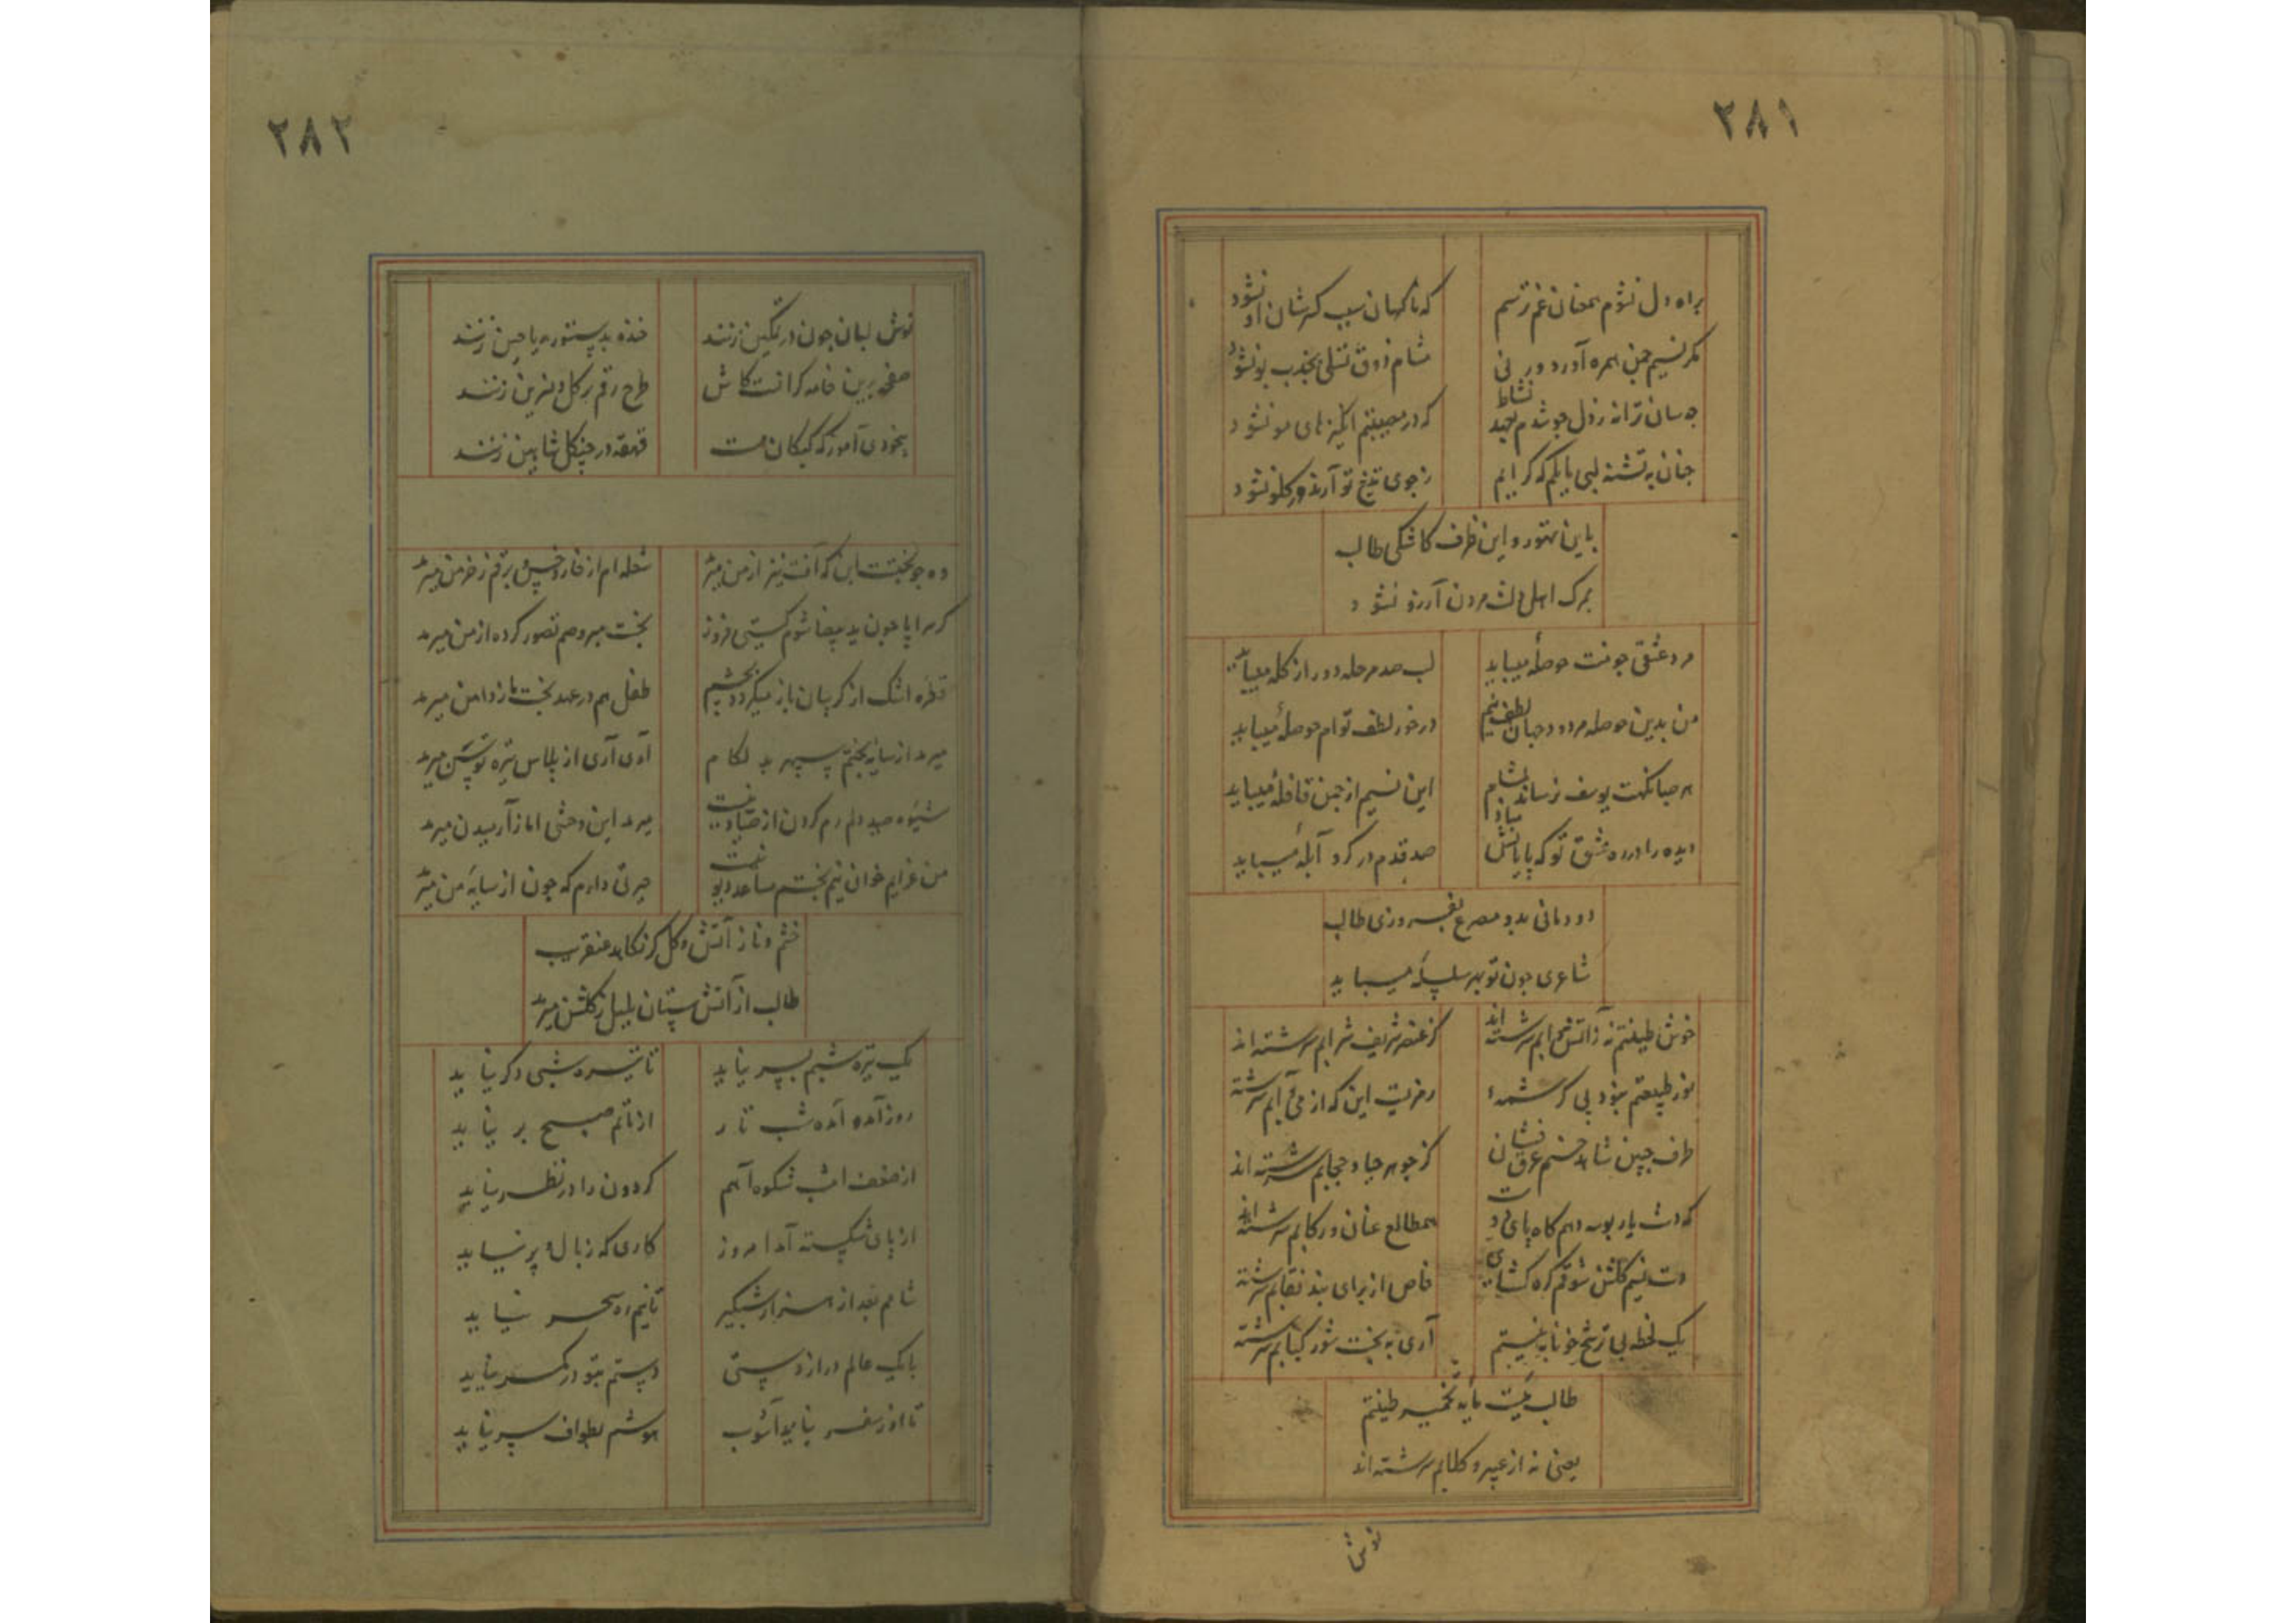 ۲۸۱
براه دل نشوم همعنان غم ترسم
که ناکهان سبب کسر شان او نشود
مکر نسیم چمن همره آورد ور نی
مشام ذوق تسلی بجذب بو نشود
چه سان ترانه ز دل جوشدم بعهد نشاط
که در مصیبتم انکیز های مو نشود
چنان به تشنه لبی مایلم که کر آبم
ز جوی تیغ تو آرند در کلو نشود
باین تهور و این ظرف کاشکی طالب
بمرک اهل دلت مردن آرزو نشود
مرد عشقی چو منت حوصلهٔ میباید
لب صد مرحله دور از کله میباید
من بدین حوصله مردود جهان لطف نیم
در خور لطف توام حوصلهٔ میباید
هر صبا نکهت یوسف نرساند بمشام
این نسیم از چمن قافلهٔ میباید
دیده را در ره عشق تو که پایانش مباد
صد قدم در کرد آبلهٔ میباید
دودمانی بدو مصرع بفروزی طالب
شاعری چون تو بهر سلسلهٔ میباید
خوش طینتم نه ز آتش و آبم سرشته اند
کز عنصر شریف شرابم سرشته اند
نور طبیعتم نبود بی کرشمهٔ
رمزیست این که از می نابم سرشته
طرف جبین شاهد حسنم عرق فشان
کز جوهر حیا و حجابم سرشته اند
که دست یار بوسه دهم کاه پای دوست
همطالع عنان و رکابم سرشته اند
دست نسیم کلشن شوقم کره کشای
خاص از برای بند نقابم سرشته
یک لحظه بی ترشح خونابه نیستم
آری به بخت شور کبابم سرشته
طالب میست مایهٔ تخمیر طینتم
یعنی نه از عبیر و کلابم سرشته اند
نوش
۲۸۲
نوش لبان چون در تمکین زنند
خنده بدستوریه یاحین زنند
صفحه برین خامه کرانست کاش
طرح رقم بر کل و نسرین زنند
بیخودی آموز که کبکان مست
قهقهه در چنکل شاهین زنند
وه چو بختست این که آتش نیز از من میرمد
شعله ام از خار و خس برقم ز خرمن میرمد
کر سراپا چون ید بیضا شوم کیتی فروز
بخت میرد هم تصور کرده از من میرمد
قطره اشک از کریبان باز میکردد بچشم
طفل هم در عهد بخت ما ز دامن میرمد
میرمد از سایهٔ بختم سپهر بد لکام
آری آری از پلاس تیره توسن میرمد
شیوه صید دلم رم کردن از صیاد نیست
میرمد این وحشی اما ز آرمیدن میرمد
من عزایم خوان نیم بختم مساعد دیو نیست
حیرتی دارم که چون از سایهٔ من میرمد
خشم و ناز آتش و کل کر نکاهد عنقریب
طالب از آتش پرستان بلبل ز کلشن میرمد
یک تیره شبم بسر نیاید
تا تیره شبی دکر نیاید
روز آمده آمده شب تار
از ناتم صبح بر نیاید
از ضعف امشب شکوه آهم
کردون را در نظر نیاید
از پای شکسته آمد امروز
کاری که ز بال و پر نیاید
شامم بعد از هزار شبکیر
تا نیم ره سحر نیاید
با یک عالم دراز دستی
دستم بتو در کمر نیاید
تا از سفر نیامد آشوب
هوشم بطواف سر نیاید